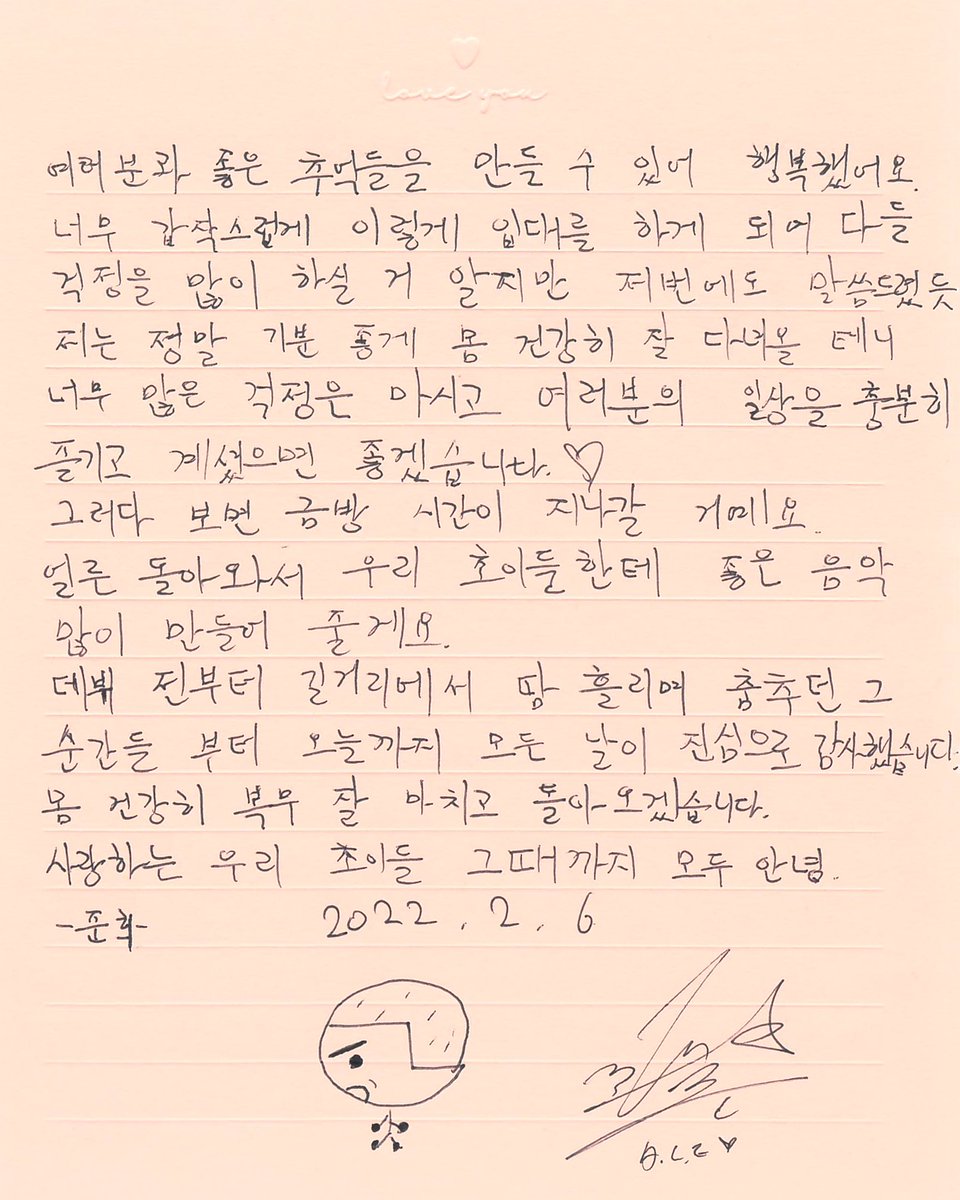 love you
여러분과 좋은 추억들을 만들 수 있어 행복했어요.
너무 갑작스럽게 이렇게 입대를 하게 되어 다들
걱정을 많이 하실 거 알지만 저번에도 말씀드렸듯
저는 정말 기분 좋게 몸 건강히 잘 다녀올 테니
너무 많은 걱정은 마시고 여러분의 일상을 충분히
즐기고 계셨으면 좋겠습니다. ♡
그러다 보면 금방 시간이 지나갈 거예요.
얼른 돌아와서 우리 초이들한테 좋은 음악
많이 만들어 줄게요.
데뷔 전부터 길거리에서 땀 흘리며 춤추던 그
순간들 부터 오늘까지 모든 날이 진심으로 감사했습니다.
몸 건강히 복무 잘 마치고 돌아오겠습니다.
사랑하는 우리 초이들 그때까지 모두 안녕.
-준희- 2022.2.6
A.C.E ♥